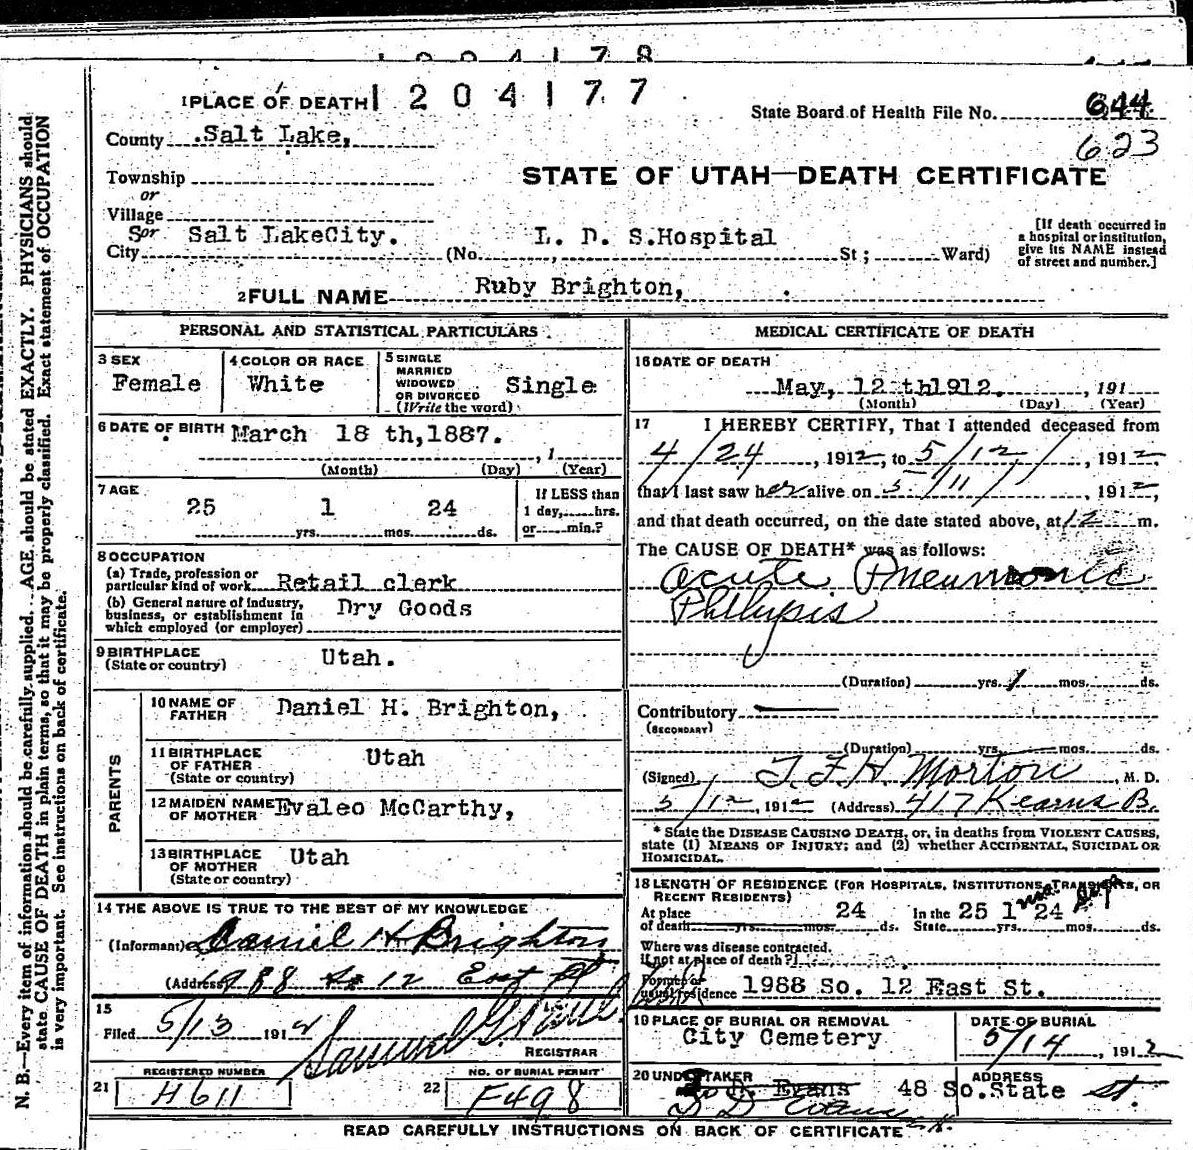 1204178
1PLACE OF DEATH 1204177
State Board of Health File No. 644
County Salt Lake,
623
Township
STATE OF UTAH—DEATH CERTIFICATE
or
Village
Sor Salt LakeCity.
City (No. L. D. S.Hospital St ; Ward)
[If death occurred in
a hospital or institution,
give its NAME instead
of street and number.]
2FULL NAME Ruby Brighton,
PERSONAL AND STATISTICAL PARTICULARS
3 SEX
Female
4 COLOR OR RACE
White
5 SINGLE
MARRIED
WIDOWED
OR DIVORCED
(Write the word)
Single
6 DATE OF BIRTH March 18 th,1887.
, 1
(Month) (Day) (Year)
7 AGE
25 1 24
yrs. mos. ds.
If LESS than
1 day, hrs.
or min.?
8 OCCUPATION
(a) Trade, profession or
particular kind of work Retail clerk
(b) General nature of industry,
business, or establishment in
which employed (or employer) Dry Goods
9 BIRTHPLACE
(State or country) Utah.
PARENTS
10 NAME OF
FATHER Daniel H. Brighton,
11 BIRTHPLACE
OF FATHER
(State or country) Utah
12 MAIDEN NAME
OF MOTHER Evaleo McCarthy,
13 BIRTHPLACE
OF MOTHER
(State or country) Utah
14 THE ABOVE IS TRUE TO THE BEST OF MY KNOWLEDGE
(Informant) Daniel H Brighton
(Address) 1988 So 12 East St
15
Filed 5/13 1912
REGISTRAR
REGISTERED NUMBER
21 H611
NO. OF BURIAL PERMIT
22 F498
MEDICAL CERTIFICATE OF DEATH
16 DATE OF DEATH
May, 12 th1912. , 191
(Month) (Day) (Year)
17 I HEREBY CERTIFY, That I attended deceased from
4/24 , 1912, to 5/12/ , 1912,
that I last saw her alive on 5/11/ , 1912,
and that death occurred, on the date stated above, at 12 m.
The CAUSE OF DEATH* was as follows:
Acute Pneumonic
Phthysis
(Duration) yrs. 1 mos. ds.
Contributory
(SECONDARY)
(Duration) yrs. mos. ds.
(Signed) T. F. H. Morton , M. D.
5/12, 1912 (Address) 417 Kearns B.
* State the DISEASE CAUSING DEATH, or, in deaths from VIOLENT CAUSES,
state (1) MEANS OF INJURY; and (2) whether ACCIDENTAL, SUICIDAL OR
HOMICIDAL.
18 LENGTH OF RESIDENCE (FOR HOSPITALS, INSTITUTIONS, TRANSIENTS, OR
RECENT RESIDENTS)
At place
of death yrs. mos. 24 ds.
In the
State 25 yrs. 1 mos. 24 ds.
mos. days
Where was disease contracted,
if not at place of death?
Former or
usual residence 1988 So. 12 East St.
19 PLACE OF BURIAL OR REMOVAL
City Cemetery
DATE OF BURIAL
5/14 , 1912
20 UNDERTAKER
Evans
S D Evans
ADDRESS
48 So.State St.
READ CAREFULLY INSTRUCTIONS ON BACK OF CERTIFICATE
N. B.—Every item of information should be carefully supplied. AGE should be stated EXACTLY. PHYSICIANS should
state CAUSE OF DEATH in plain terms, so that it may be properly classified. Exact statement of OCCUPATION
is very important. See instructions on back of certificate.